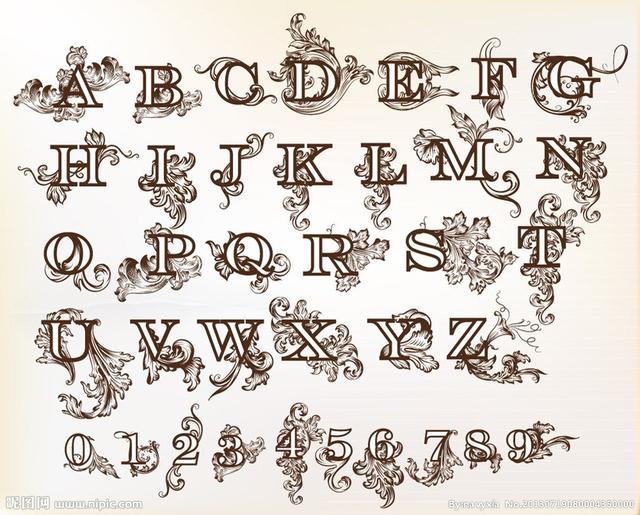 A B C D E F G
H I J K L M N
O P Q R S T
U V W X Y Z
0 1 2 3 4 5 6 7 8 9
昵图网 www.nipic.com
By:navyxia No.20130719080004350000